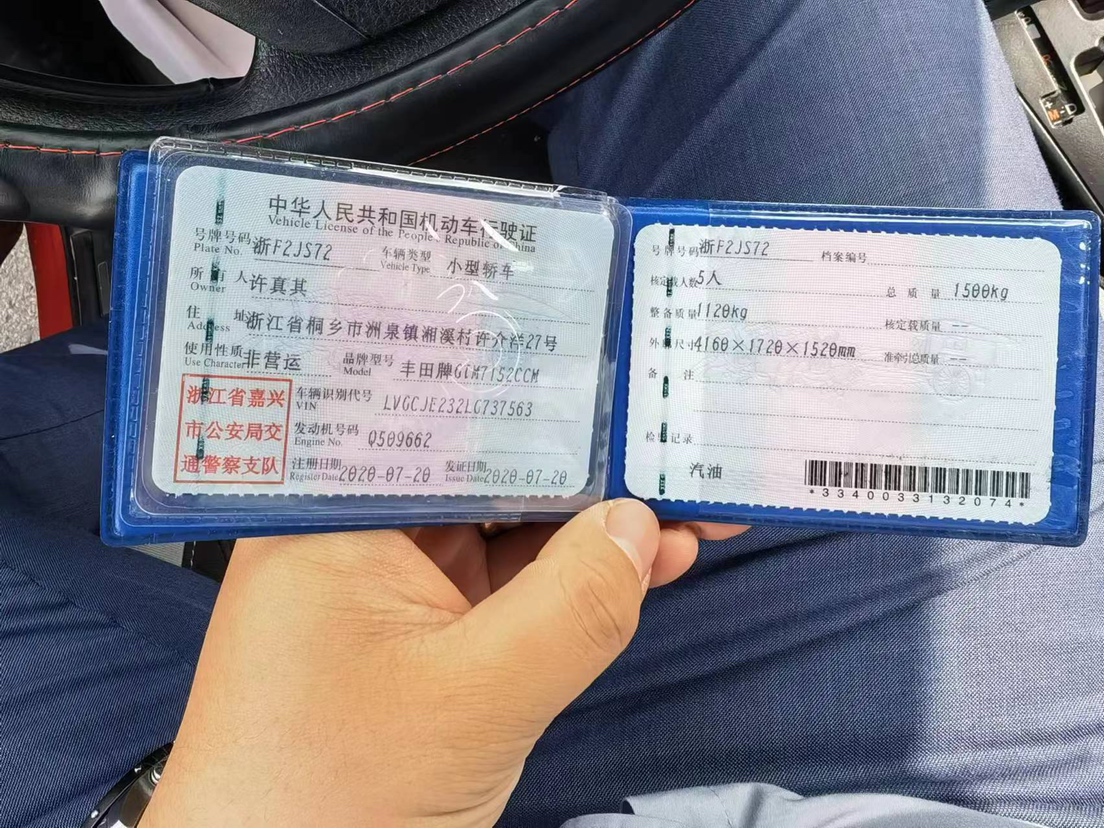 中华人民共和国机动车行驶证
Vehicle License of the People's Republic of China
号牌号码 浙F2JS72 车辆类型 小型轿车
Plate No. Vehicle Type
所有人 许真其
Owner
住址 浙江省桐乡市洲泉镇湘溪村许介洋27号
Address
使用性质 非营运 品牌型号 丰田牌GTM7152CCM
Use Character Model
浙江省嘉兴
市公安局交
通警察支队
车辆识别代号 LVGCJE232LG737563
VIN
发动机号码 Q509662
Engine No.
注册日期 2020-07-20 发证日期 2020-07-20
Register Date Issue Date
号牌号码 浙F2JS72 档案编号
核定载人数 5人 总质量 1500kg
整备质量 1120kg 核定载质量 --
外廓尺寸 4160×1720×1520mm 准牵引总质量 --
备注
检验记录
汽油
*3340033132074*
+
M-D